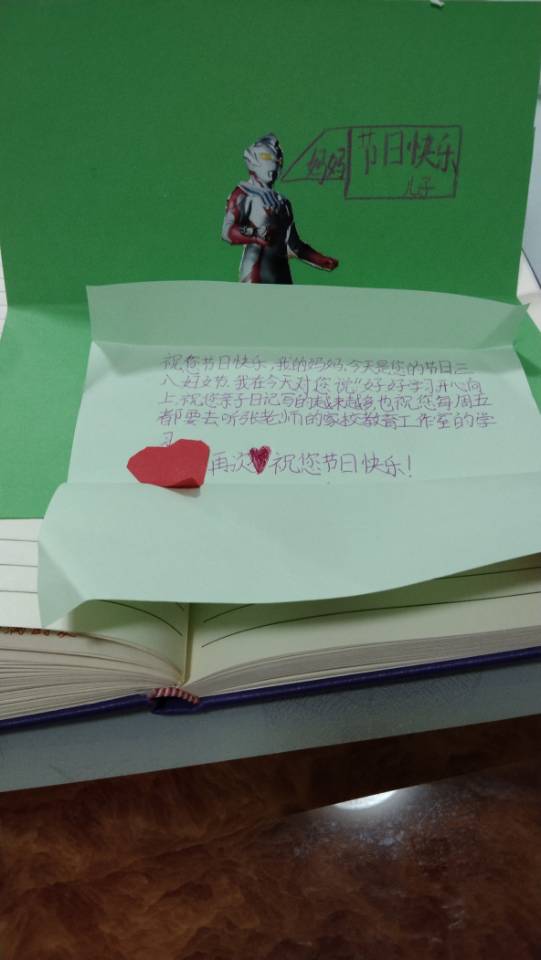 妈妈
节日快乐
儿子
祝您节日快乐,我的妈妈,今天是您的节日三
八妇女节,我在今天对您说“好好学习开心向
上,祝您亲子日记写的越来越多也祝您每周五
都要去听张老师的家校教育工作室的学
习
再次祝您节日快乐!